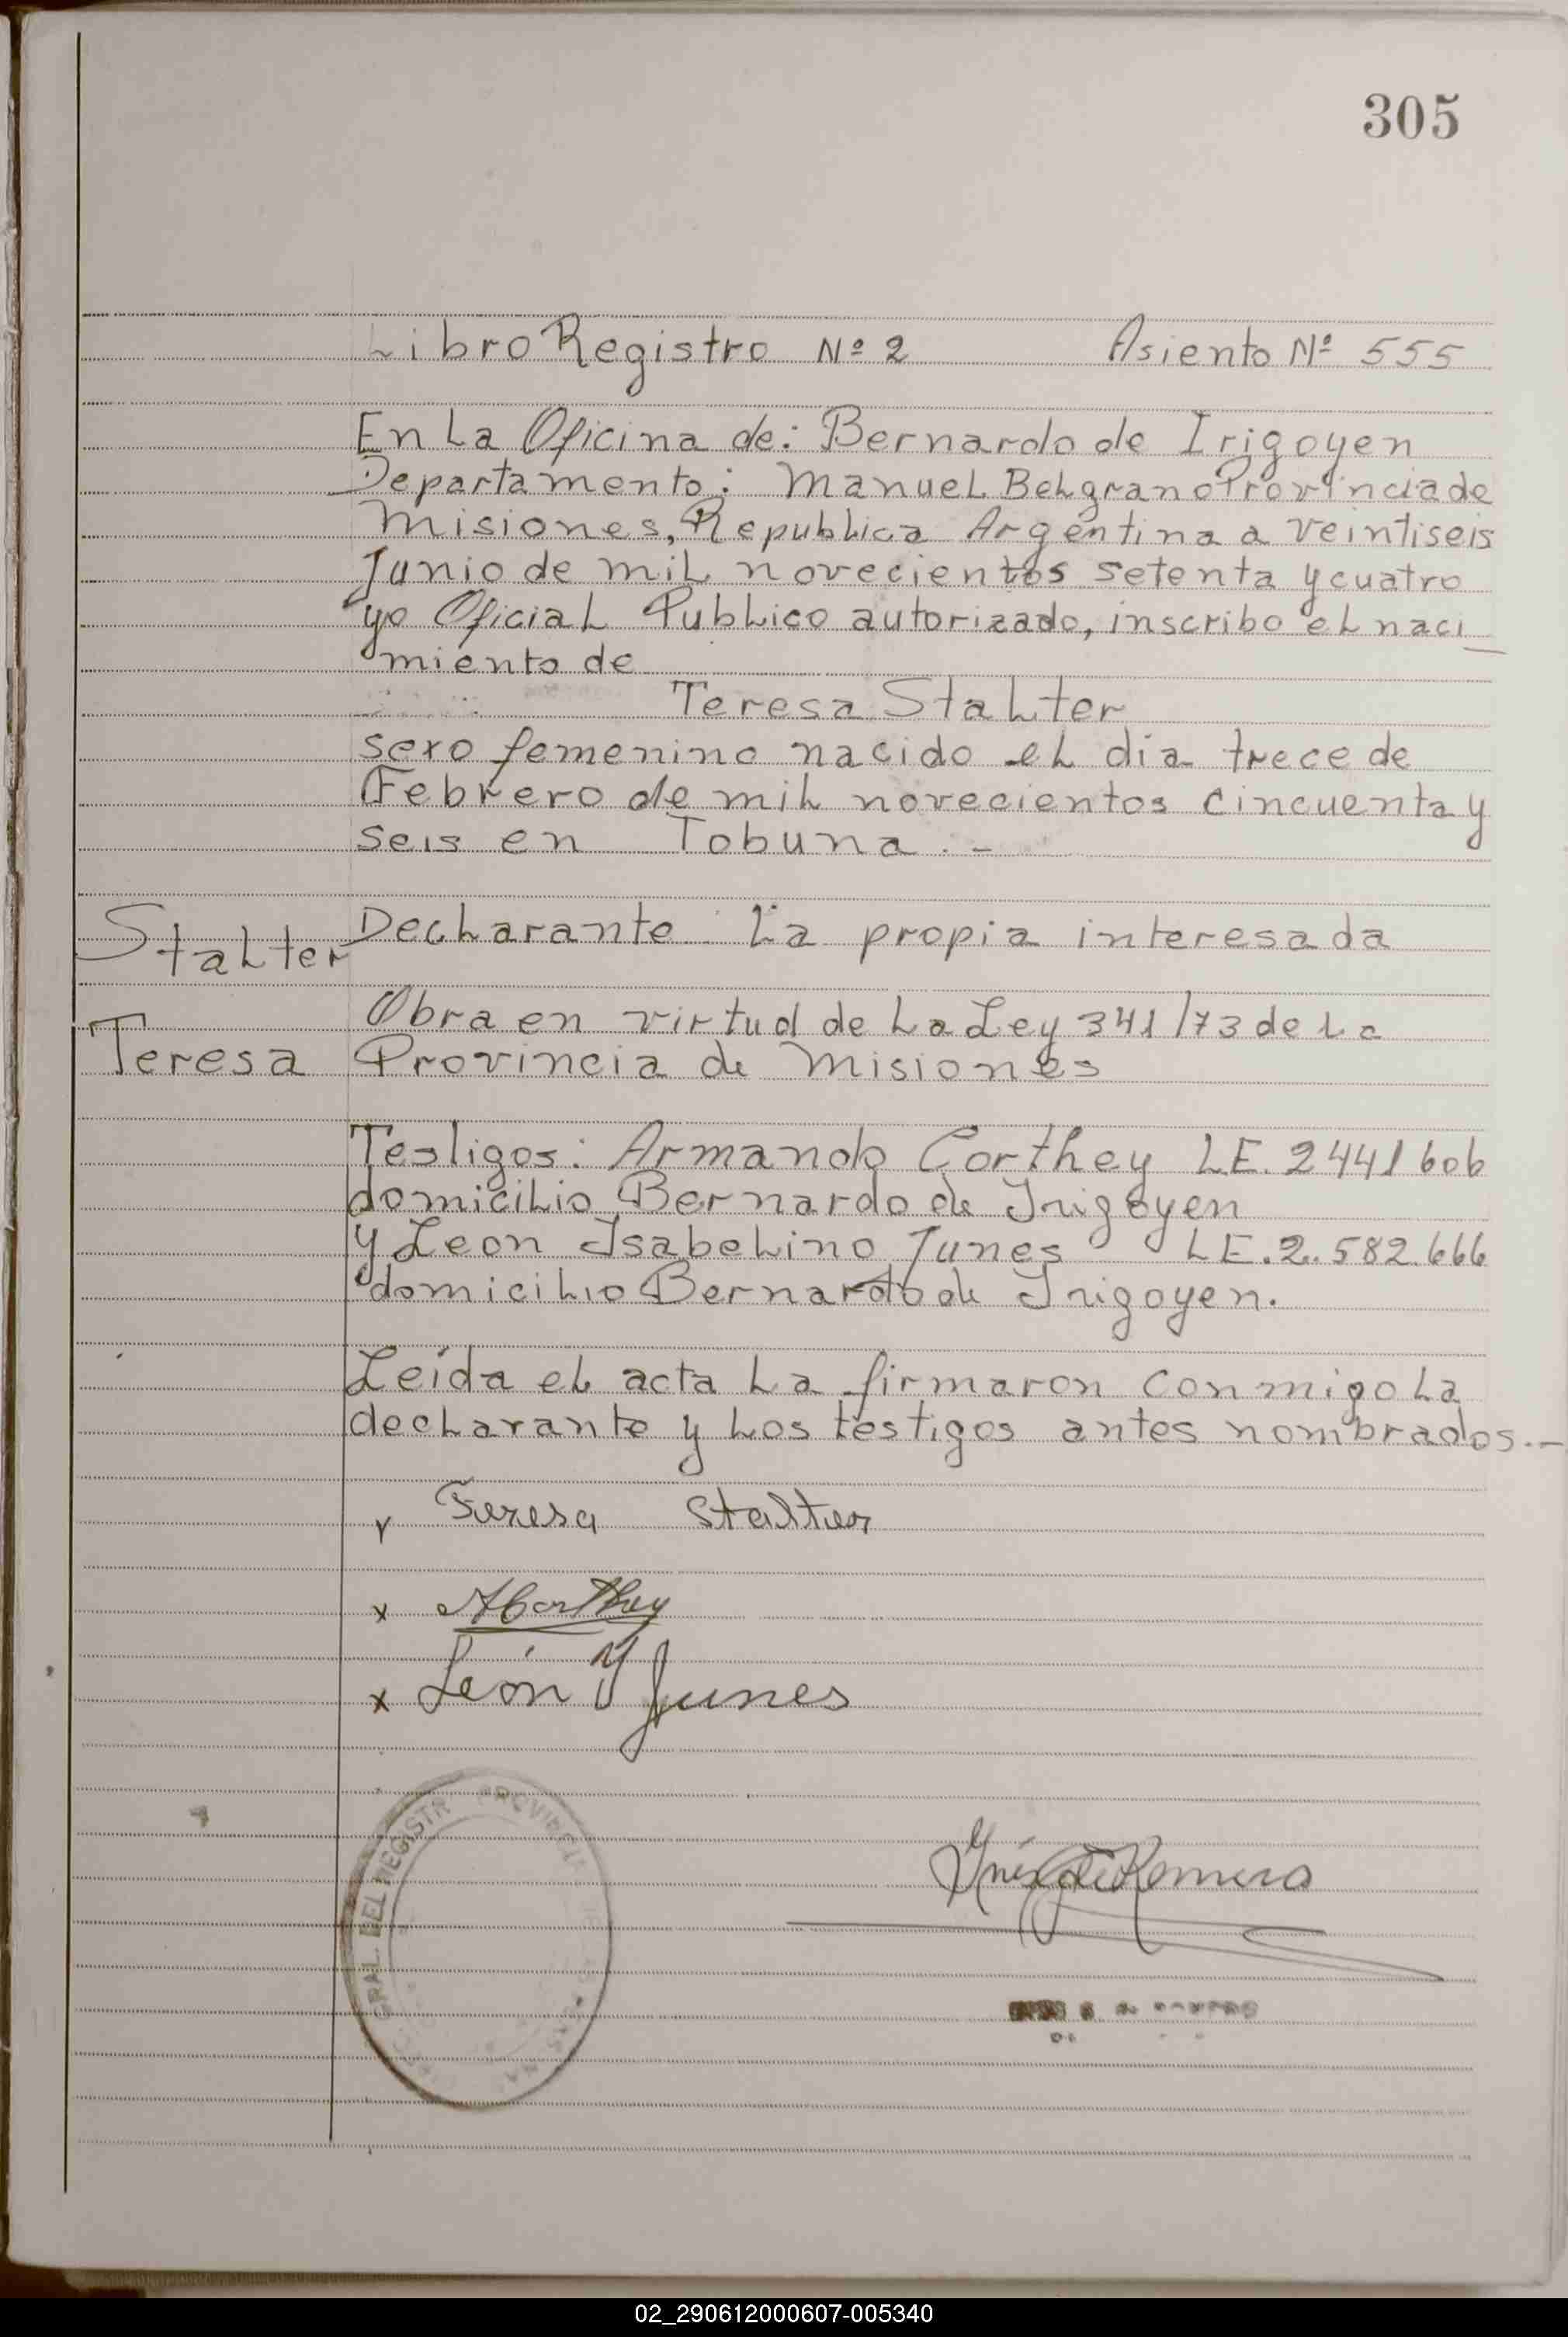 305
Libro Registro Nº 2 Asiento Nº 555
En La Oficina de: Bernardo de Irigoyen
Departamento: Manuel Belgrano Provincia de
Misiones, Republica Argentina a veintiseis
Junio de mil novecientos setenta y cuatro
yo Oficial Publico autorizado, inscribo el naci_
miento de
Teresa Stalter
sexo femenino nacido el dia trece de
Febrero de mil novecientos cincuenta y
seis en Tobuna.-
Stalter
Declarante: La propia interesada
Obra en virtud de La Ley 341/73 de La
Teresa
Provincia de Misiones
Testigos: Armando Corthey LE. 2441606
domicilio Bernardo de Irigoyen
y Leon Isabelino Junes LE. 2.582.666
domicilio Bernardo de Irigoyen.
Leída el acta La firmaron conmigo La
declarante y Los testigos antes nombrados.-
x Teresa Stalter
x ACorthey
x León Y Junes
GRAL. DEL REGISTR PROVINCIA
Romero
02_290612000607-005340